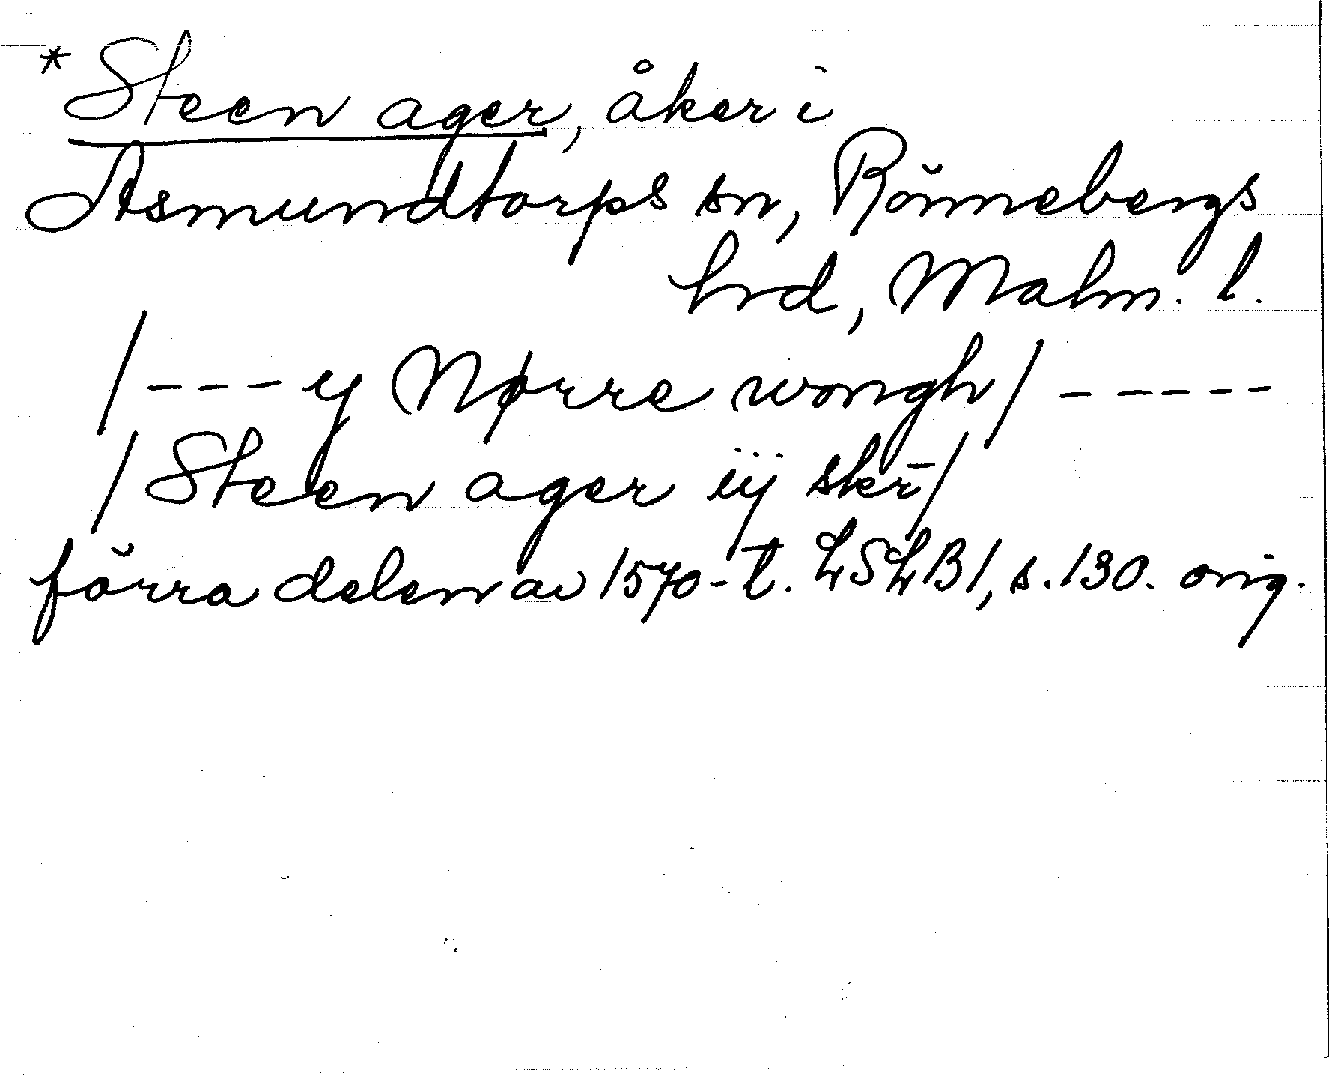 * Steen ager, åker i
Asmundtorps sn, Rönnebergs
hrd, Malm. l.
/--- y Nørre wongh/ -----
/Steen ager iij skr̄/
förra delen av 1570-t. LSLB1, s. 130. orig.